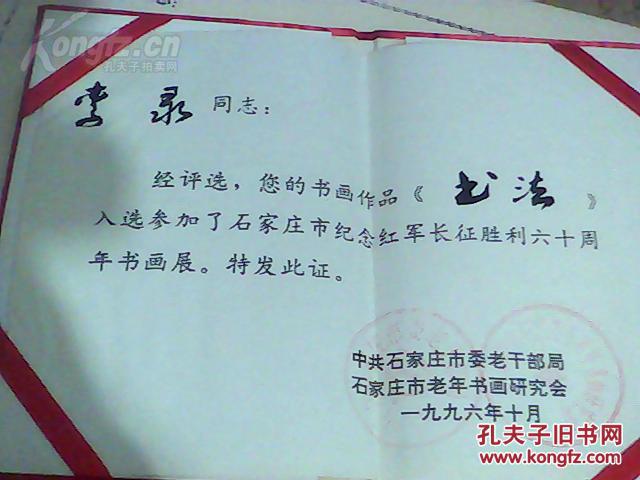 Kongfz.cn
孔夫子拍卖网
李 录 同志：
经评选，您的书画作品《 书法 》
入选参加了石家庄市纪念红军长征胜利六十周
年书画展。特发此证。
中共石家庄市委老干部局
石家庄市老年书画研究会
一九九六年十月
孔夫子旧书网
www.kongfz.com